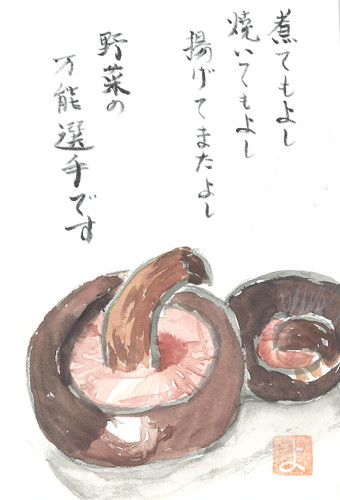 煮てもよし
焼いてもよし
揚げてまたよし
野菜の
万能選手です
よ